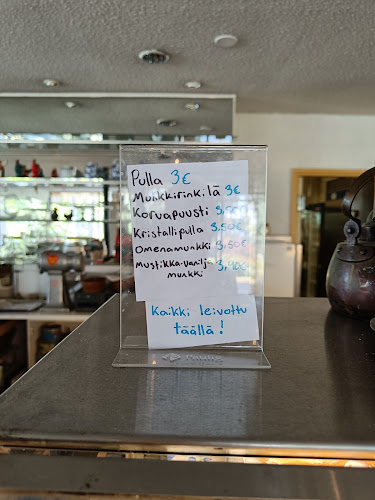 Pulla 3€
Munkkirinkilä 3€
Korvapuusti
Kristallipulla 3.50€
Omenamunkki 3,50€
Mustikka-vanilja 3,90€
munkki
Kaikki leivottu
täällä!